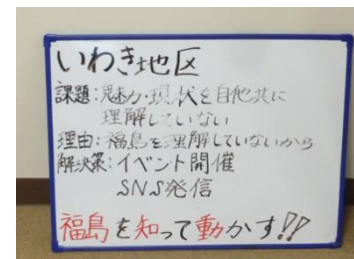 いわき地区
課題:魅力・現状を自他共に
理解していない
理由:福島を理解していないから
解決策:イベント開催
SNS発信
福島を知って動かす!!